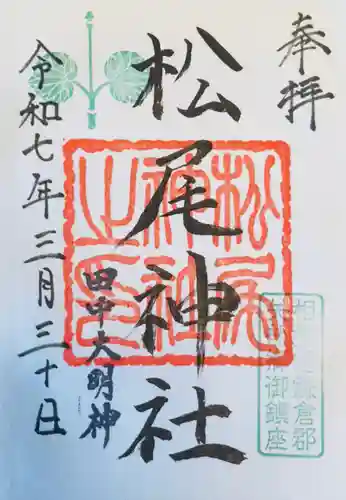 奉拝
松尾神社
田中大明神
令和七年三月三十日
松尾
神社
之印
鎌倉郡
御鎮座